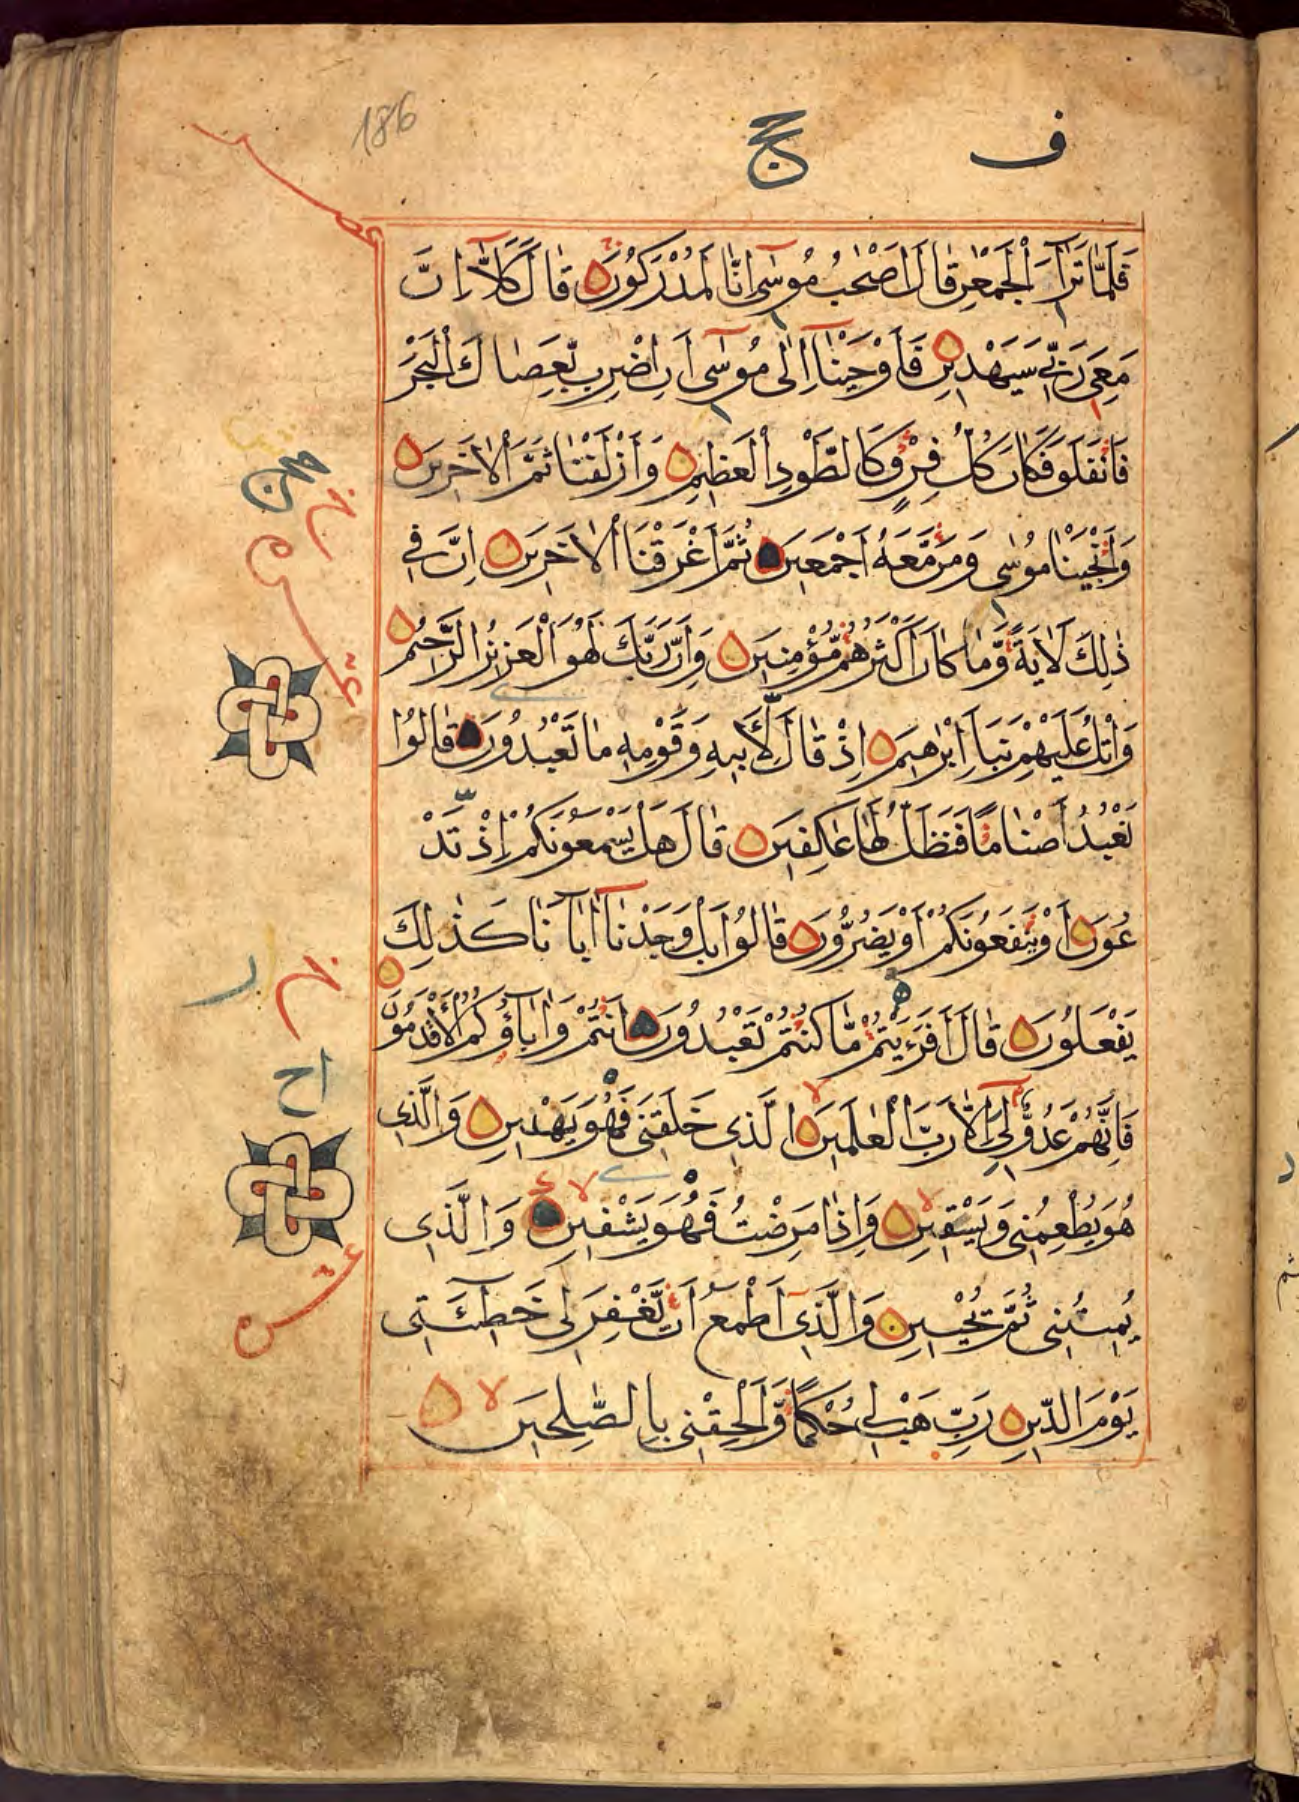 186
ف حج
فَلَمَّا تَرَآءَ الْجَمْعٰنِ قَالَ اَصْحٰبُ مُوسٰٓى اِنَّا لَمُدْرَكُونَ قَالَ كَلَّآ اِنَّ
مَعِىَ رَبّٖى سَيَهْدِينِ فَاَوْحَيْنَآ اِلٰى مُوسٰٓى اَنِ اضْرِب بِّعَصَاكَ الْبَحْرَ
فَانْفَلَقَ فَكَانَ كُلُّ فِرْقٍ كَالطَّوْدِ الْعَظِيمِ وَاَزْلَفْنَا ثَمَّ الْاٰخَرِينَ
وَاَنْجَيْنَا مُوسٰى وَمَن مَّعَهُ اَجْمَعِينَ ثُمَّ اَغْرَقْنَا الْاٰخَرِينَ اِنَّ فِى
ذٰلِكَ لَاٰيَةً وَّمَا كَانَ اَكْثَرُهُم مُّؤْمِنِينَ وَاِنَّ رَبَّكَ لَهُوَ الْعَزِيزُ الرَّحِيمُ
وَاتْلُ عَلَيْهِمْ نَبَاَ اِبْرٰهِيمَ اِذْ قَالَ لِاَبِيهِ وَقَوْمِهٖ مَا تَعْبُدُونَ قَالُوا
نَعْبُدُ اَصْنَامًا فَنَظَلُّ لَهَا عٰكِفِينَ قَالَ هَلْ يَسْمَعُونَكُمْ اِذْ تَدْ
عُونَ اَوْ يَنْفَعُونَكُمْ اَوْ يَضُرُّونَ قَالُوا بَلْ وَجَدْنَآ اٰبَآءَنَا كَذٰلِكَ
يَفْعَلُونَ قَالَ اَفَرَءَيْتُمْ مَّا كُنْتُمْ تَعْبُدُونَ اَنْتُمْ وَاٰبَآؤُكُمُ الْاَقْدَمُونَ
فَاِنَّهُمْ عَدُوٌّ لِّى اِلَّا رَبَّ الْعٰلَمِينَ الَّذِى خَلَقَنِى فَهُوَ يَهْدِينِ وَالَّذِى
هُوَ يُطْعِمُنِى وَيَسْقِينِ وَاِذَا مَرِضْتُ فَهُوَ يَشْفِينِ وَالَّذِى
يُمِيتُنِى ثُمَّ يُحْيِينِ وَالَّذِىٓ اَطْمَعُ اَنْ يَّغْفِرَ لِى خَطِيٓئَتِى
يَوْمَ الدِّينِ رَبِّ هَبْ لِى حُكْمًا وَّاَلْحِقْنِى بِالصّٰلِحِينَ